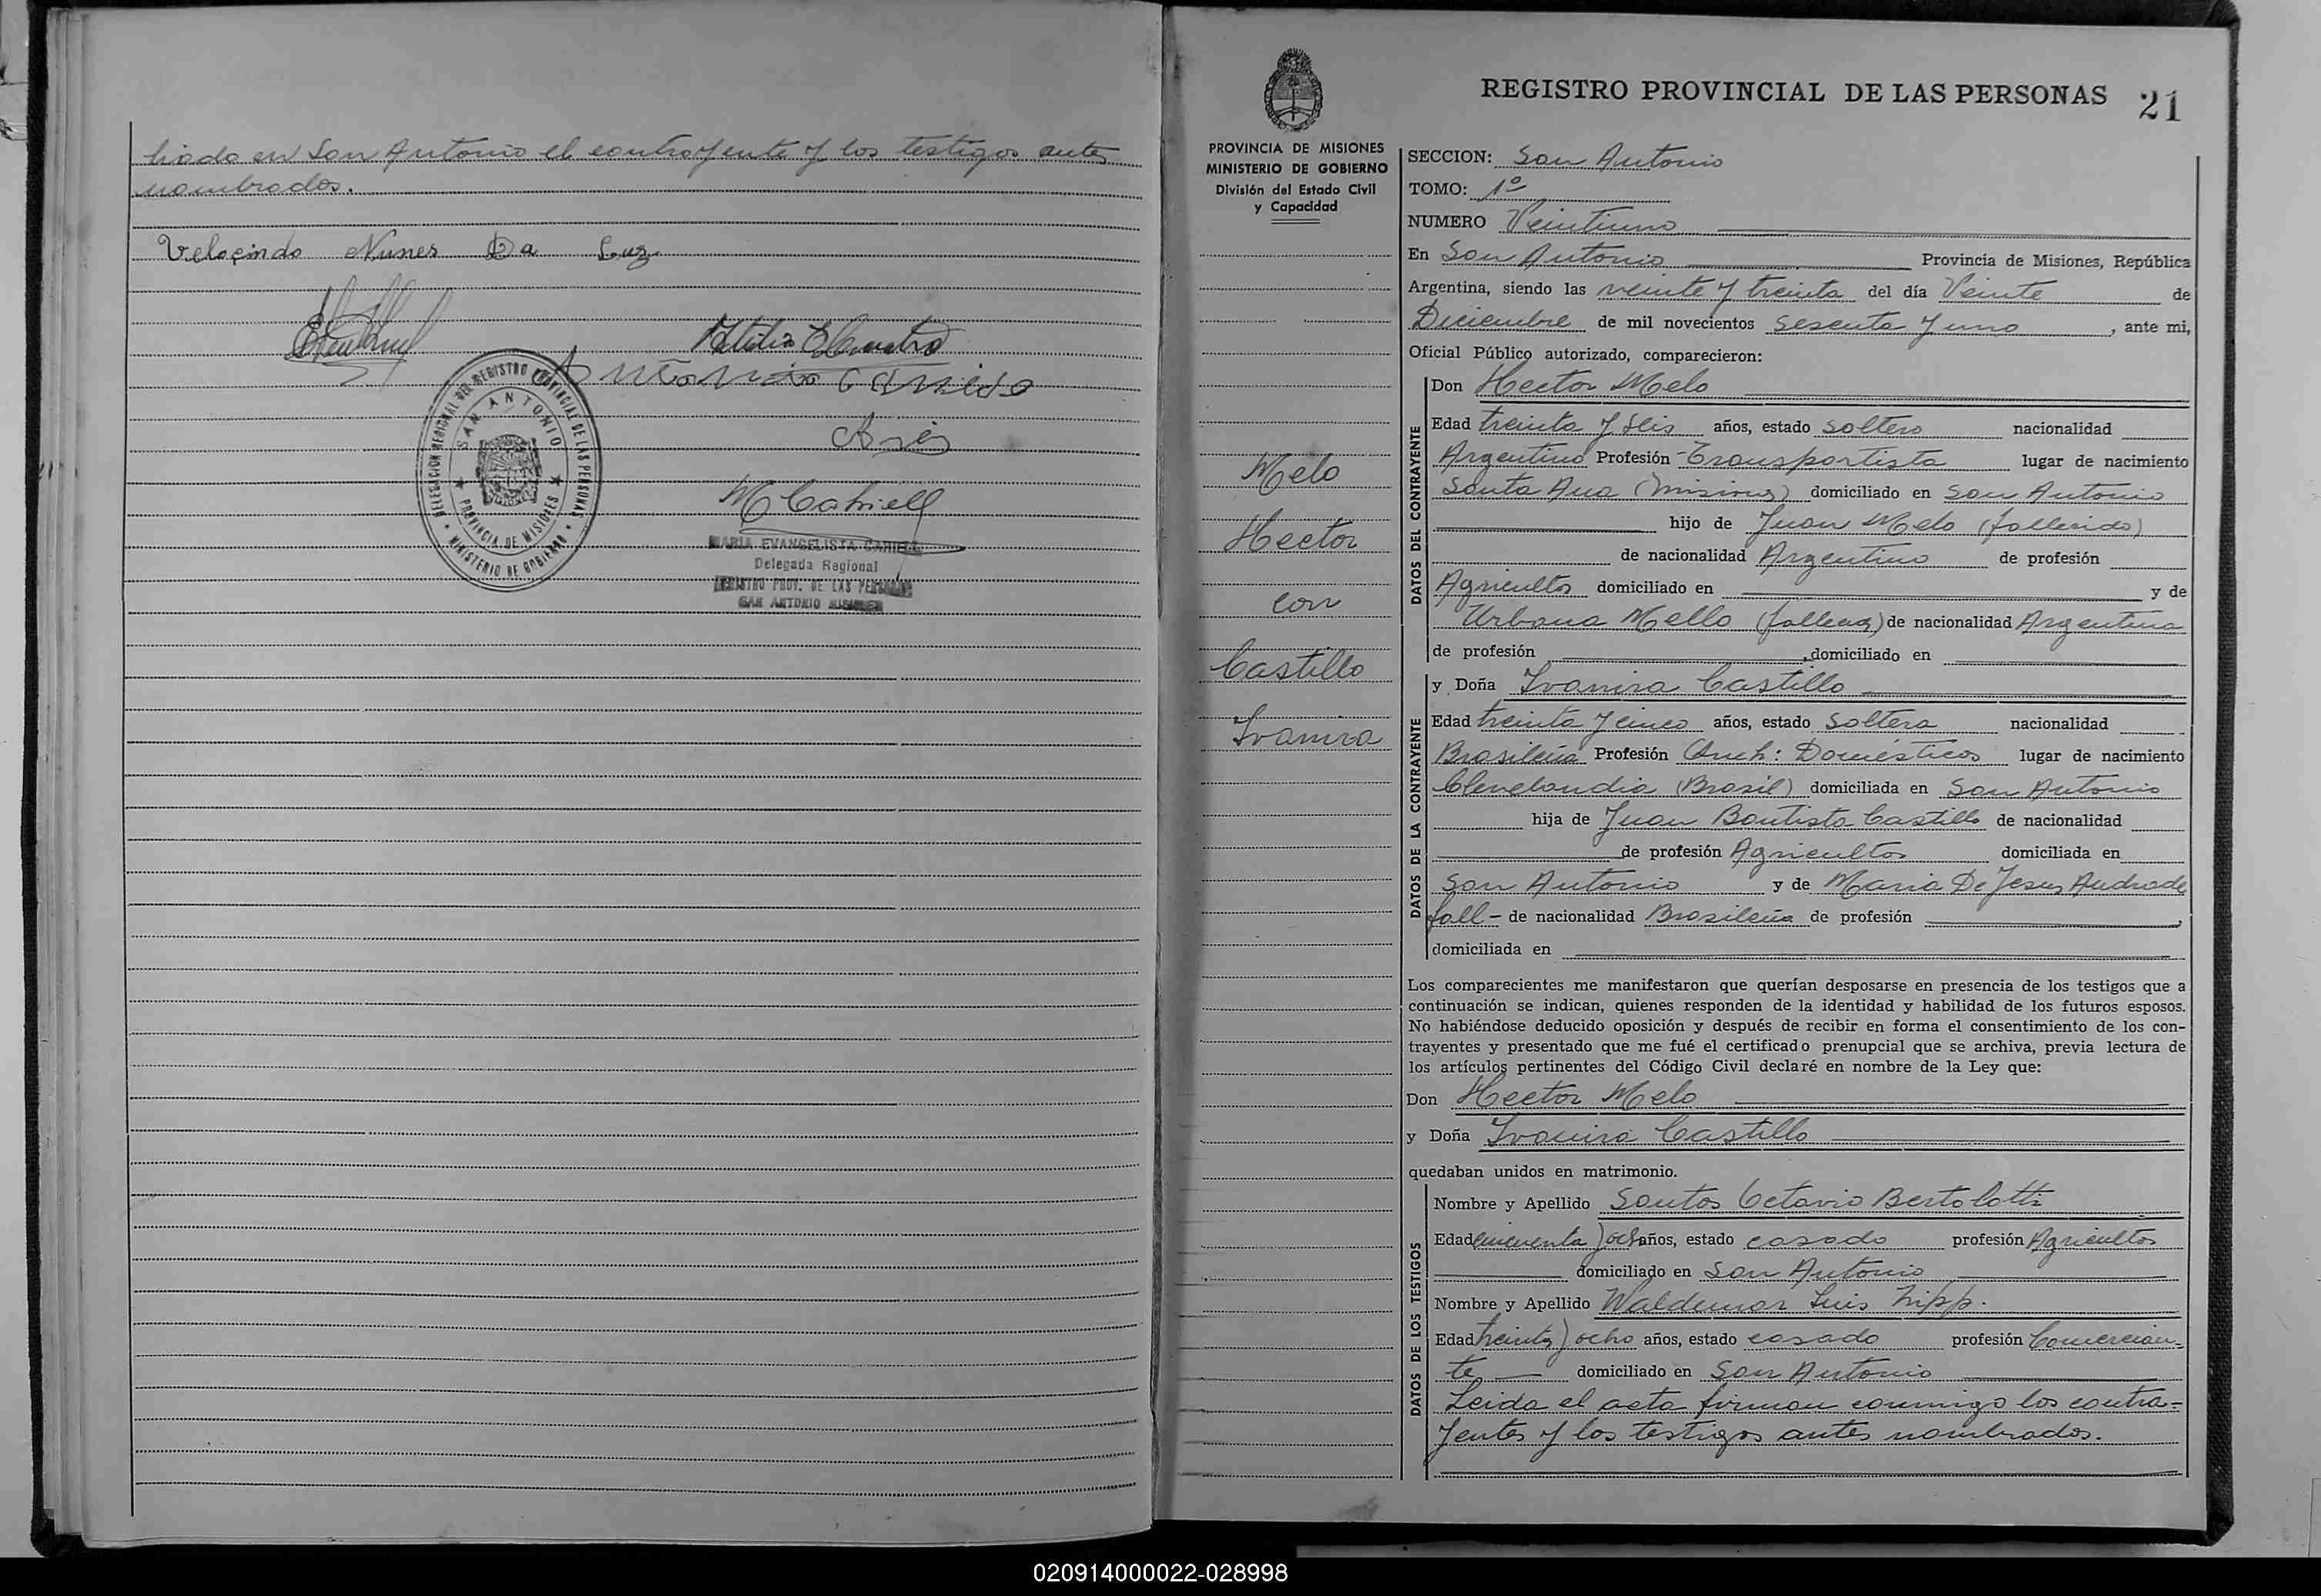 liado en San Antonio el contrayente y los testigos antes
nombrados.
Velocindo Nunes Da Luz
Antonio
M Cabriell
DELEGACION REGIONAL DEL REGISTRO PROVINCIAL DE LAS PERSONAS
SAN ANTONIO
PROVINCIA DE MISIONES
MINISTERIO DE GOBIERNO
MARIA EVANGELISTA
Delegada Regional
REGISTRO PROV. DE LAS PERSONAS
SAN ANTONIO MISIONES
REGISTRO PROVINCIAL DE LAS PERSONAS 21
PROVINCIA DE MISIONES
MINISTERIO DE GOBIERNO
División del Estado Civil
y Capacidad
Melo
Hector
con
Castillo
Ivanira
SECCION: San Antonio
TOMO: 1º
NUMERO Veintiuno
En San Antonio Provincia de Misiones, República
Argentina, siendo las veinte y treinta del día Veinte de
Diciembre de mil novecientos sesenta y uno, ante mi,
Oficial Público autorizado, comparecieron:
DATOS DEL CONTRAYENTE
Don Hector Melo
Edad treinta y seis años, estado soltero nacionalidad
Argentino Profesión Transportista lugar de nacimiento
Santa Ana (Misiones) domiciliado en San Antonio
hijo de Juan Melo (fallecido)
de nacionalidad Argentino de profesión
Agricultor domiciliado en y de
Urbana Mello (fallecida) de nacionalidad Argentina
de profesión , domiciliado en
DATOS DE LA CONTRAYENTE
y Doña Ivanira Castillo
Edad treinta y cinco años, estado soltera nacionalidad
Brasileña Profesión Queh: Domésticos lugar de nacimiento
Clevelandia (Brasil) domiciliada en San Antonio
hija de Juan Bautista Castillo de nacionalidad
de profesión Agricultor domiciliada en
San Antonio y de Maria De Jesus Andrade
fall- de nacionalidad Brasileña de profesión
domiciliada en
Los comparecientes me manifestaron que querían desposarse en presencia de los testigos que a
continuación se indican, quienes responden de la identidad y habilidad de los futuros esposos.
No habiéndose deducido oposición y después de recibir en forma el consentimiento de los con-
trayentes y presentado que me fué el certificado prenupcial que se archiva, previa lectura de
los artículos pertinentes del Código Civil declaré en nombre de la Ley que:
Don Hector Melo
y Doña Ivanira Castillo
quedaban unidos en matrimonio.
DATOS DE LOS TESTIGOS
Nombre y Apellido Santos Octavio Bertolotti
Edad cincuenta y ocho años, estado casado profesión Agricultor
domiciliado en San Antonio
Nombre y Apellido Waldemar Luis
Edad treinta y ocho años, estado casado profesión Comercian-
te domiciliado en San Antonio
Leida el acta firman conmigo los contra-
yentes y los testigos antes nombrados.
020914000022-028998